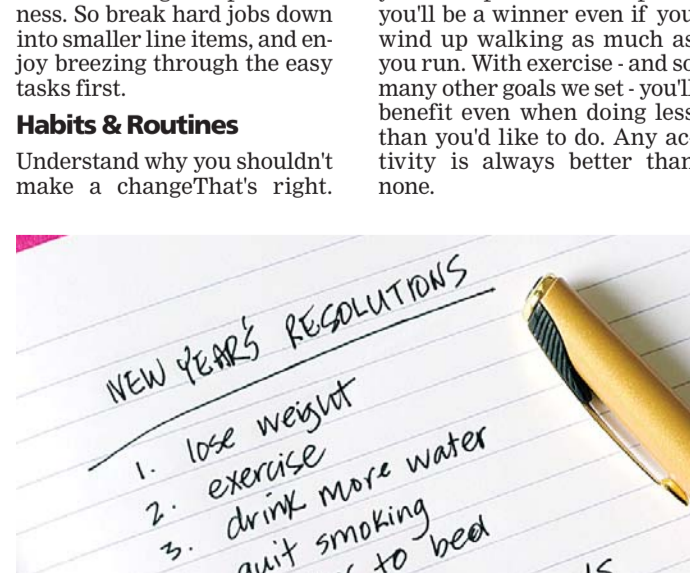 ness. So break hard jobs down
into smaller line items, and en-
joy breezing through the easy
tasks first.
Habits & Routines
Understand why you shouldn't
make a changeThat's right.
you'll be a winner even if you
wind up walking as much as
you run. With exercise - and so
many other goals we set - you'll
benefit even when doing less
than you'd like to do. Any ac-
tivity is always better than
none.
NEW YEAR'S RESOLUTIONS
1. lose weight
2. exercise
3. drink more water
quit smoking
to bed